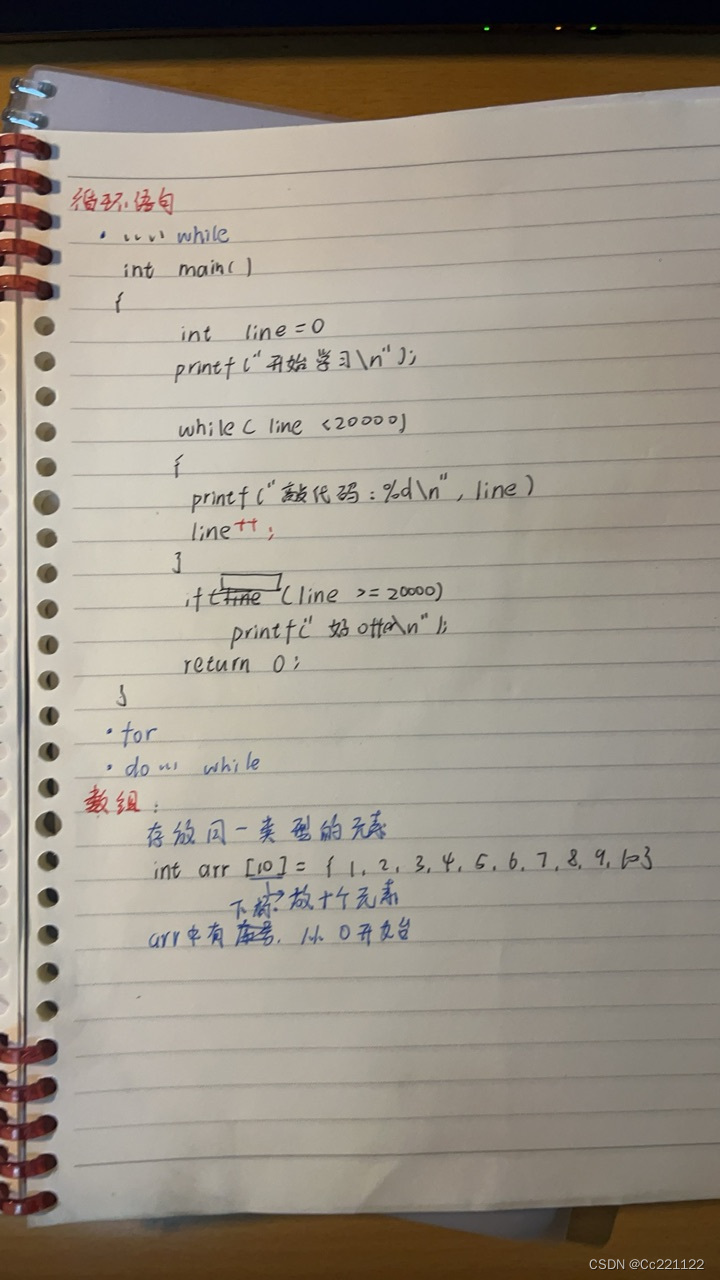 循环语句
· ···· while
int main()
{
int line=0
printf("开始学习\n");
while( line <20000)
{
printf("敲代码:%d\n", line)
line++;
}
if (line >= 20000)
printf(" 好offer\n" );
return 0;
}
· for
· do ··· while
数组:
存放同一类型的元素
int arr [10] = { 1, 2, 3, 4, 5, 6, 7, 8, 9, 10}
→放十个元素
下标
arr中有 . 从 0 开始
CSDN @Cc221122